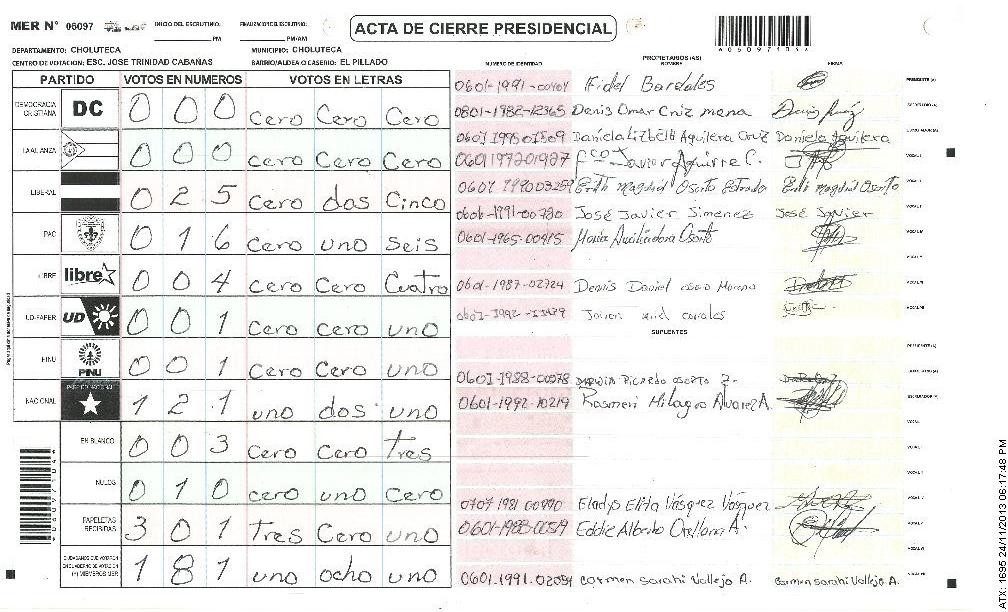 MER N° 06097 INICIO DEL ESCRUTINIO: PM FINALIZACION DEL ESCRUTINIO: PM/AM
ACTA DE CIERRE PRESIDENCIAL
DEPARTAMENTO: CHOLUTECA MUNICIPIO: CHOLUTECA
CENTRO DE VOTACION: ESC. JOSE TRINIDAD CABAÑAS BARRIO/ALDEA O CASERIO: EL PILLADO
PARTIDO VOTOS EN NUMEROS VOTOS EN LETRAS
DEMOCRACIA CRISTIANA DC 0 0 0 cero Cero Cero
LA ALIANZA 0 0 0 cero Cero Cero
LIBERAL 0 2 5 cero dos Cinco
PAC 0 1 6 cero uno seis
LIBRE libre 0 0 4 cero Cero Cuatro
UD-FAPER UD 0 0 1 Cero Cero uno
PINU PINU 0 0 1 cero Cero uno
NACIONAL PARTIDO NACIONAL 1 2 1 uno dos uno
EN BLANCO 0 0 3 cero Cero tres
NULOS 0 1 0 cero uno cero
PAPELETAS RECIBIDAS 3 0 1 Tres Cero uno
CIUDADANOS QUE VOTARON EN CUADERNO DE VOTACION (+) MIEMBROS MER 1 8 1 uno ocho uno
PROPIETARIOS (AS)
NUMERO DE IDENTIDAD NOMBRE FIRMA
Fidel Bardales PRESIDENTE (A)
0801-1982-12365 Denis Omar Cruz mena SECRETARIO (A)
Daniela Lizbeth Aguilera Cruz Daniela Aguilera ESCRUTADOR (A)
Fco Javier Aguirre C. VOCAL I
0606-1991-00780 José Javier Simenez José Javier
0601-1965-00415 María Auxiliadora Osorto
0601-1987-02724 Dennis Daniel osorto Moreno
SUPLENTES
PRESIDENTE (A)
0601-1988-00078 DARWIN RICARDO OSORTO
0601-1992-10219 Rosmeri Milagro Alvarez A.
0707 1981 00990 Eladys Elita Vásquez Vásquez
0601-1988-00519 Eddie Alberto Orellana A.
0601-1991-02034 Carmen Sarahi Vallejo A. Carmen Sarahi Vallejo A.
ATX: 1695 24/11/2013 06:17:48 PM